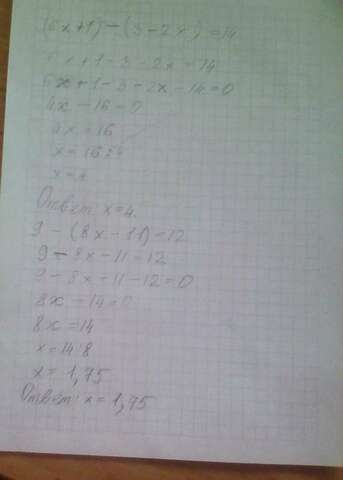 (6x+1)-(3-2x)=14
6x+1-3-2x=14
6x+1-3-2x-14=0
4x-16=0
4x=16
x=16:4
x=4
Ответ: x=4.
9-(8x-11)=12
9-8x-11=12
9-8x-11-12=0
8x-14=0
8x=14
x=14:8
x=1,75
Ответ: x=1,75